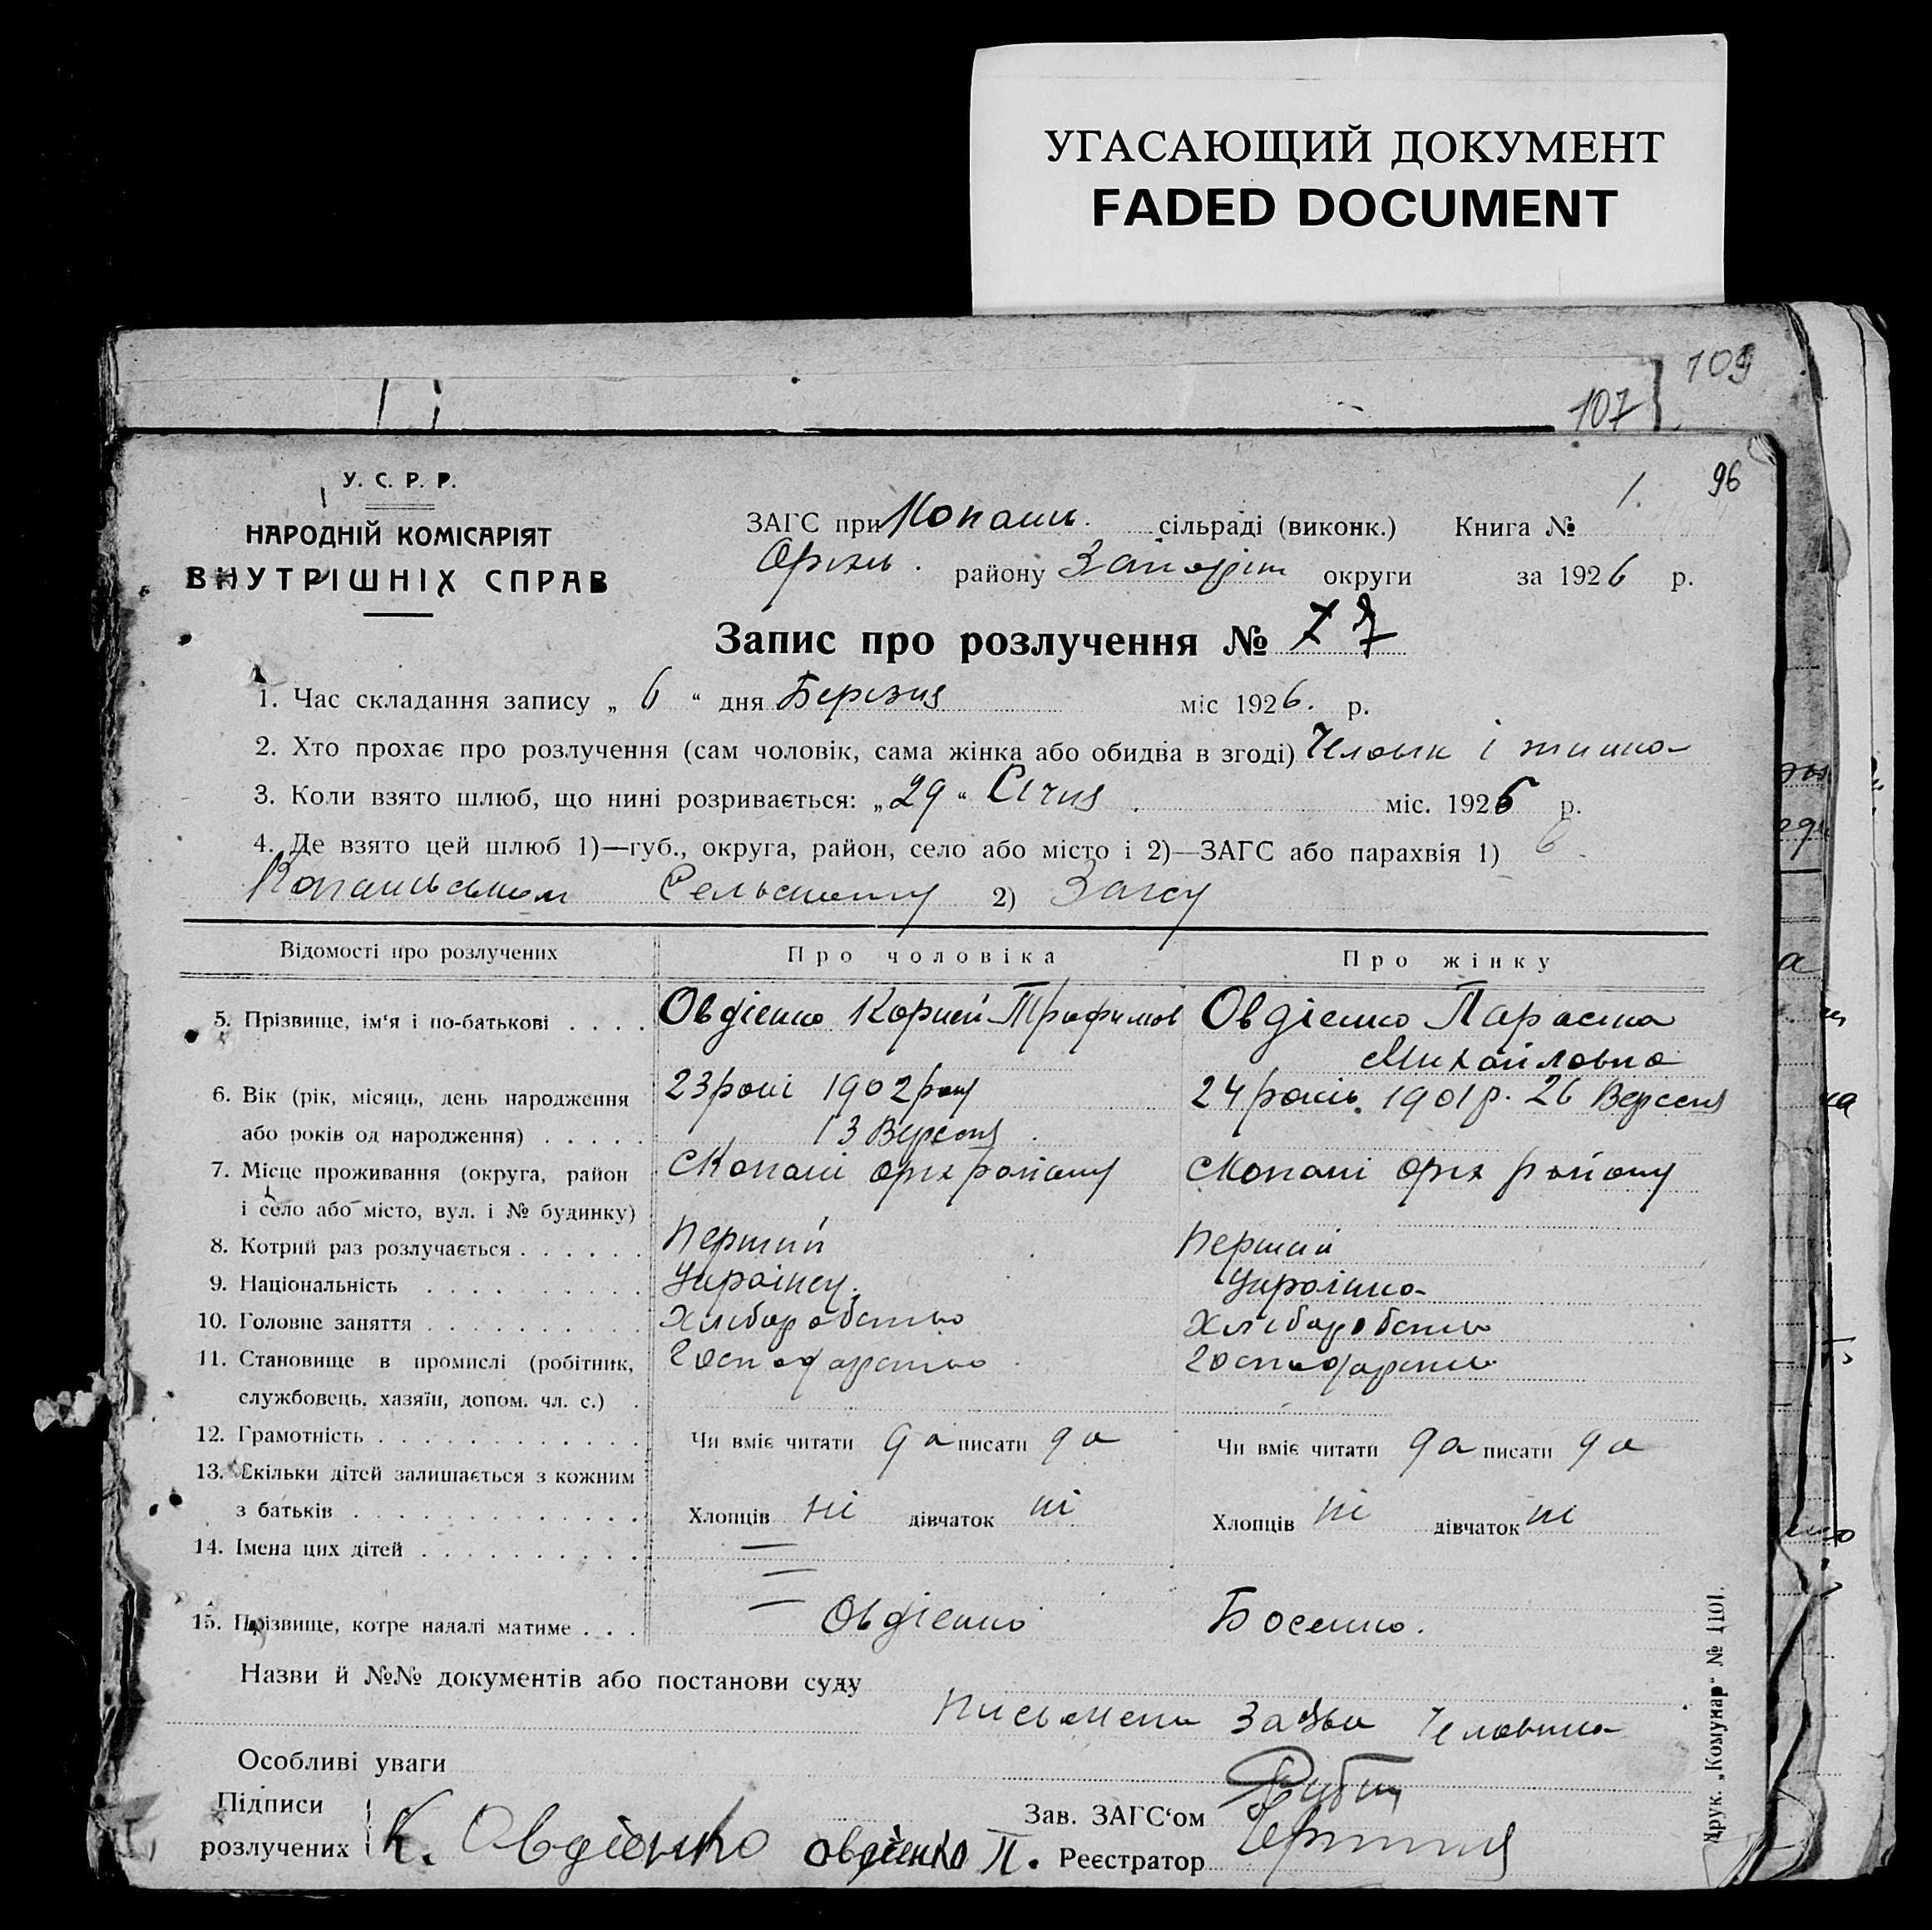 УГАСАЮЩИЙ ДОКУМЕНТ
FADED DOCUMENT
109
107
96
У. С. Р. Р.
НАРОДНІЙ КОМІСАРІЯТ
ВНУТРІШНІХ СПРАВ
ЗАГС при Копань. сільраді (виконк.) Книга № 1.
Оріхів. району Запоріж округи за 1926 р.
Запис про розлучення №
1. Час складання запису „ 6 “ дня Березня міс 1926. р.
2. Хто прохає про розлучення (сам чоловік, сама жінка або обидва в згоді) Чловік і жинка
3. Коли взято шлюб, що нині розривається: „ 29 “ Січня міс. 1926 р.
4. Де взято цей шлюб 1)—губ., округа, район, село або місто і 2)—ЗАГС або парахвія 1) в
Копанському 2) Загсу
Відомості про розлучених Про чоловіка Про жінку
5. Прізвище, ім‘я і по-батькові . . . . Овдієнко Корней Трофимов Овдієнко Параска
Михайловна
6. Вік (рік, місяць, день народження 23 роки 1902 року 24 років 1901 р. 26 Вересня
або років од народження) . . . . . 13 Вересня
7. Місце проживання (округа, район СКопані Оріх району СКопані Оріх району
і село або місто, вул. і № будинку)
8. Котрий раз розлучається . . . . . . Перший Перший
9. Національність . . . . . . . . . Українец. Українка
10. Головне заняття . . . . . . . . . . Хліборобство Хліборобство
11. Становище в промислі (робітник, Господарство Господарство
службовець, хазяїн, допом. чл. с.) .
12. Грамотність . . . . . . . . . . . . Чи вміє читати да писати да Чи вміє читати да писати да
13. Скільки дітей залишається з кожним
з батьків . . . . . . . . . . . . . Хлопців ні дівчаток ні Хлопців ні дівчаток ні
14. Імена цих дітей . . . . . . . . . . —
15. Прізвище, котре надалі матиме . . . Овдієнко Босенко.
Назви й №№ документів або постанови суду
Письмена Заява Человика
Особливі уваги
Підписи
розлучених К. Овдієнко Овдієнко П.
Зав. ЗАГС‘ом
Реєстратор
Друк. „Комунар“ № 1101.